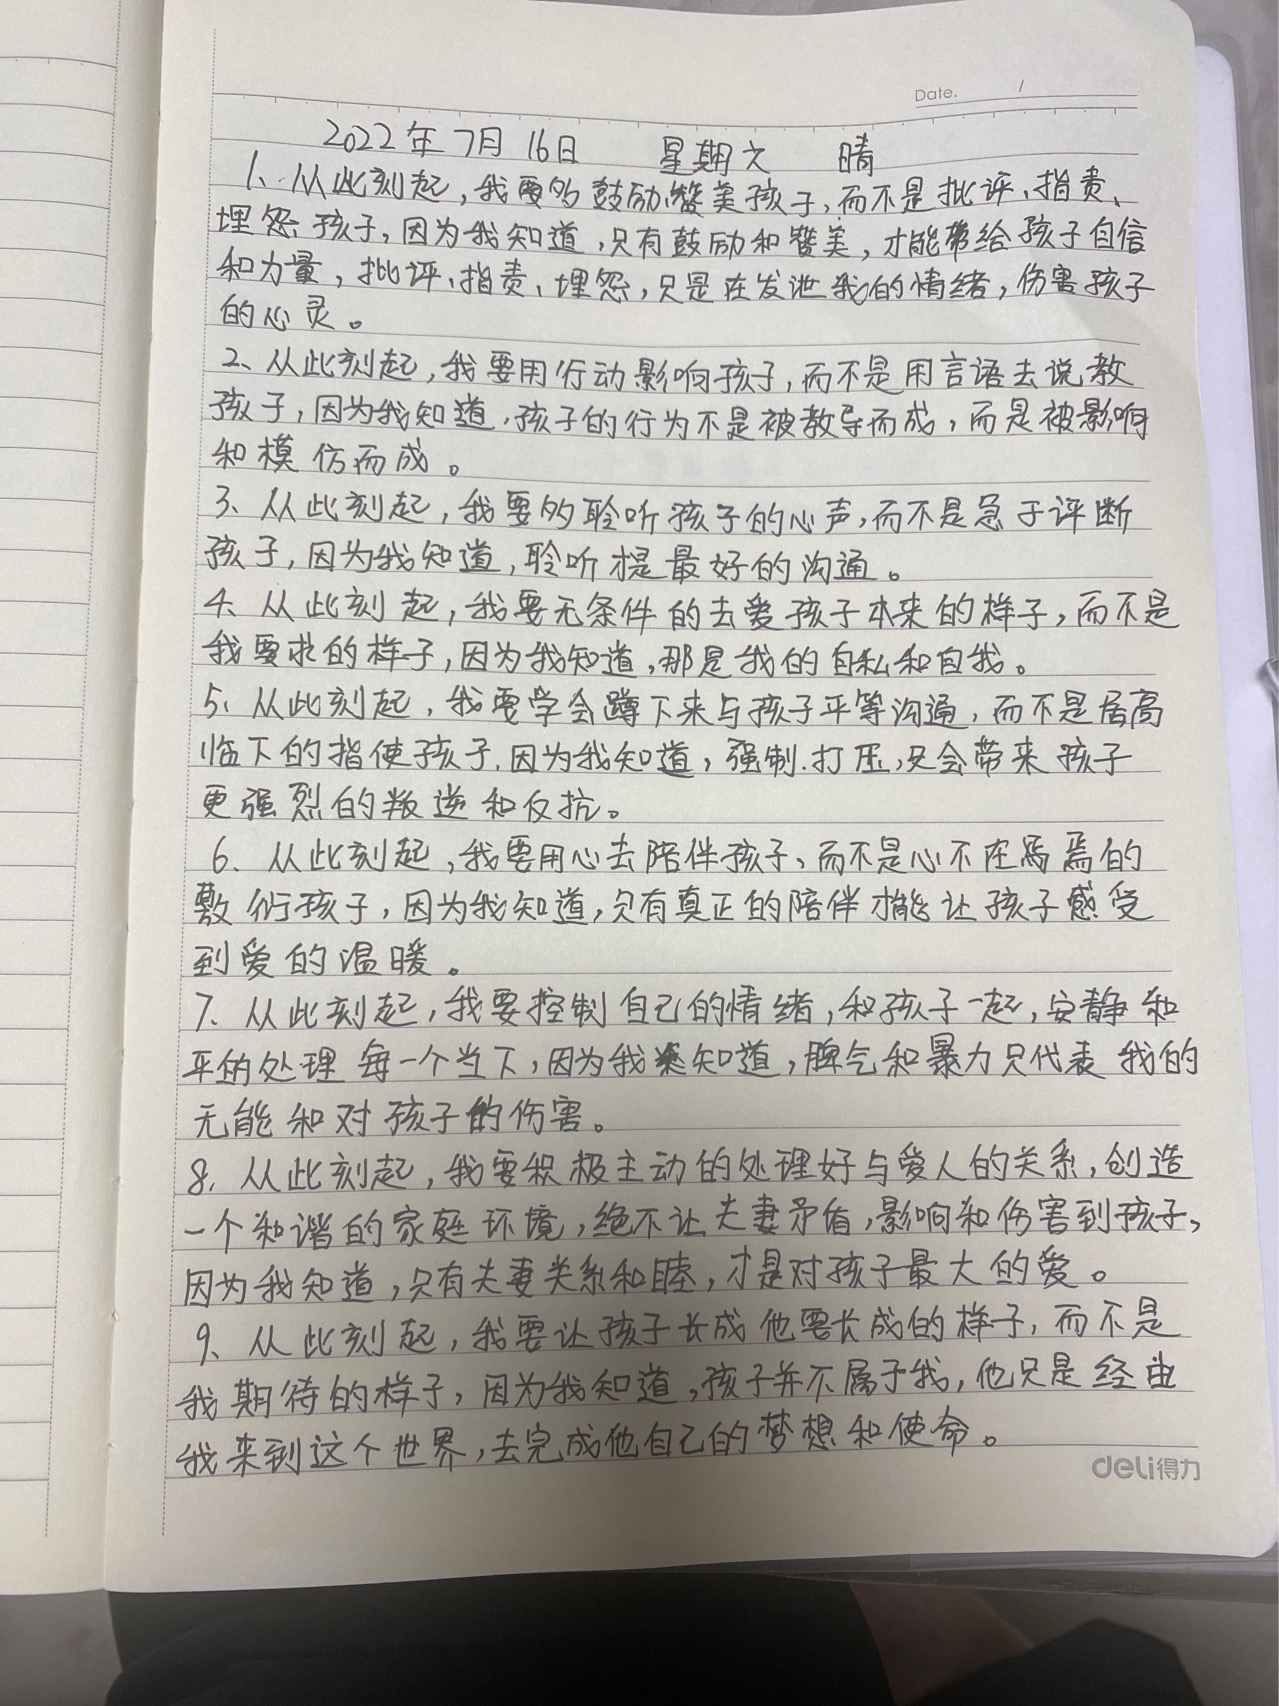 Date. /
2022年7月16日 星期六 晴
1、从此刻起,我要多鼓励、赞美孩子,而不是批评、指责、
埋怨孩子,因为我知道,只有鼓励和赞美,才能带给孩子自信
和力量,批评、指责、埋怨,只是在发泄我的情绪,伤害孩子
的心灵。
2、从此刻起,我要用行动影响孩子,而不是用言语去说教
孩子,因为我知道,孩子的行为不是被教导而成,而是被影响
和模仿而成。
3、从此刻起,我要多聆听孩子的心声,而不是急于评断
孩子,因为我知道,聆听才是最好的沟通。
4、从此刻起,我要无条件的去爱孩子本来的样子,而不是
我要求的样子,因为我知道,那是我的自私和自我。
5、从此刻起,我要学会蹲下来与孩子平等沟通,而不是居高
临下的指使孩子,因为我知道,强制、打压,只会带来孩子
更强烈的叛逆和反抗。
6、从此刻起,我要用心去陪伴孩子,而不是心不在焉焉的
敷衍孩子,因为我知道,只有真正的陪伴才能让孩子感受
到爱的温暖。
7、从此刻起,我要控制自己的情绪,和孩子一起,安静和
平的处理每一个当下,因为我知道,脾气和暴力只代表我的
无能和对孩子的伤害。
8、从此刻起,我要积极主动的处理好与爱人的关系,创造
一个和谐的家庭环境,绝不让夫妻矛盾,影响和伤害到孩子,
因为我知道,只有夫妻关系和睦,才是对孩子最大的爱。
9、从此刻起,我要让孩子长成他要长成的样子,而不是
我期待的样子,因为我知道,孩子并不属于我,他只是经由
我来到这个世界,去完成他自己的梦想和使命。
deli得力